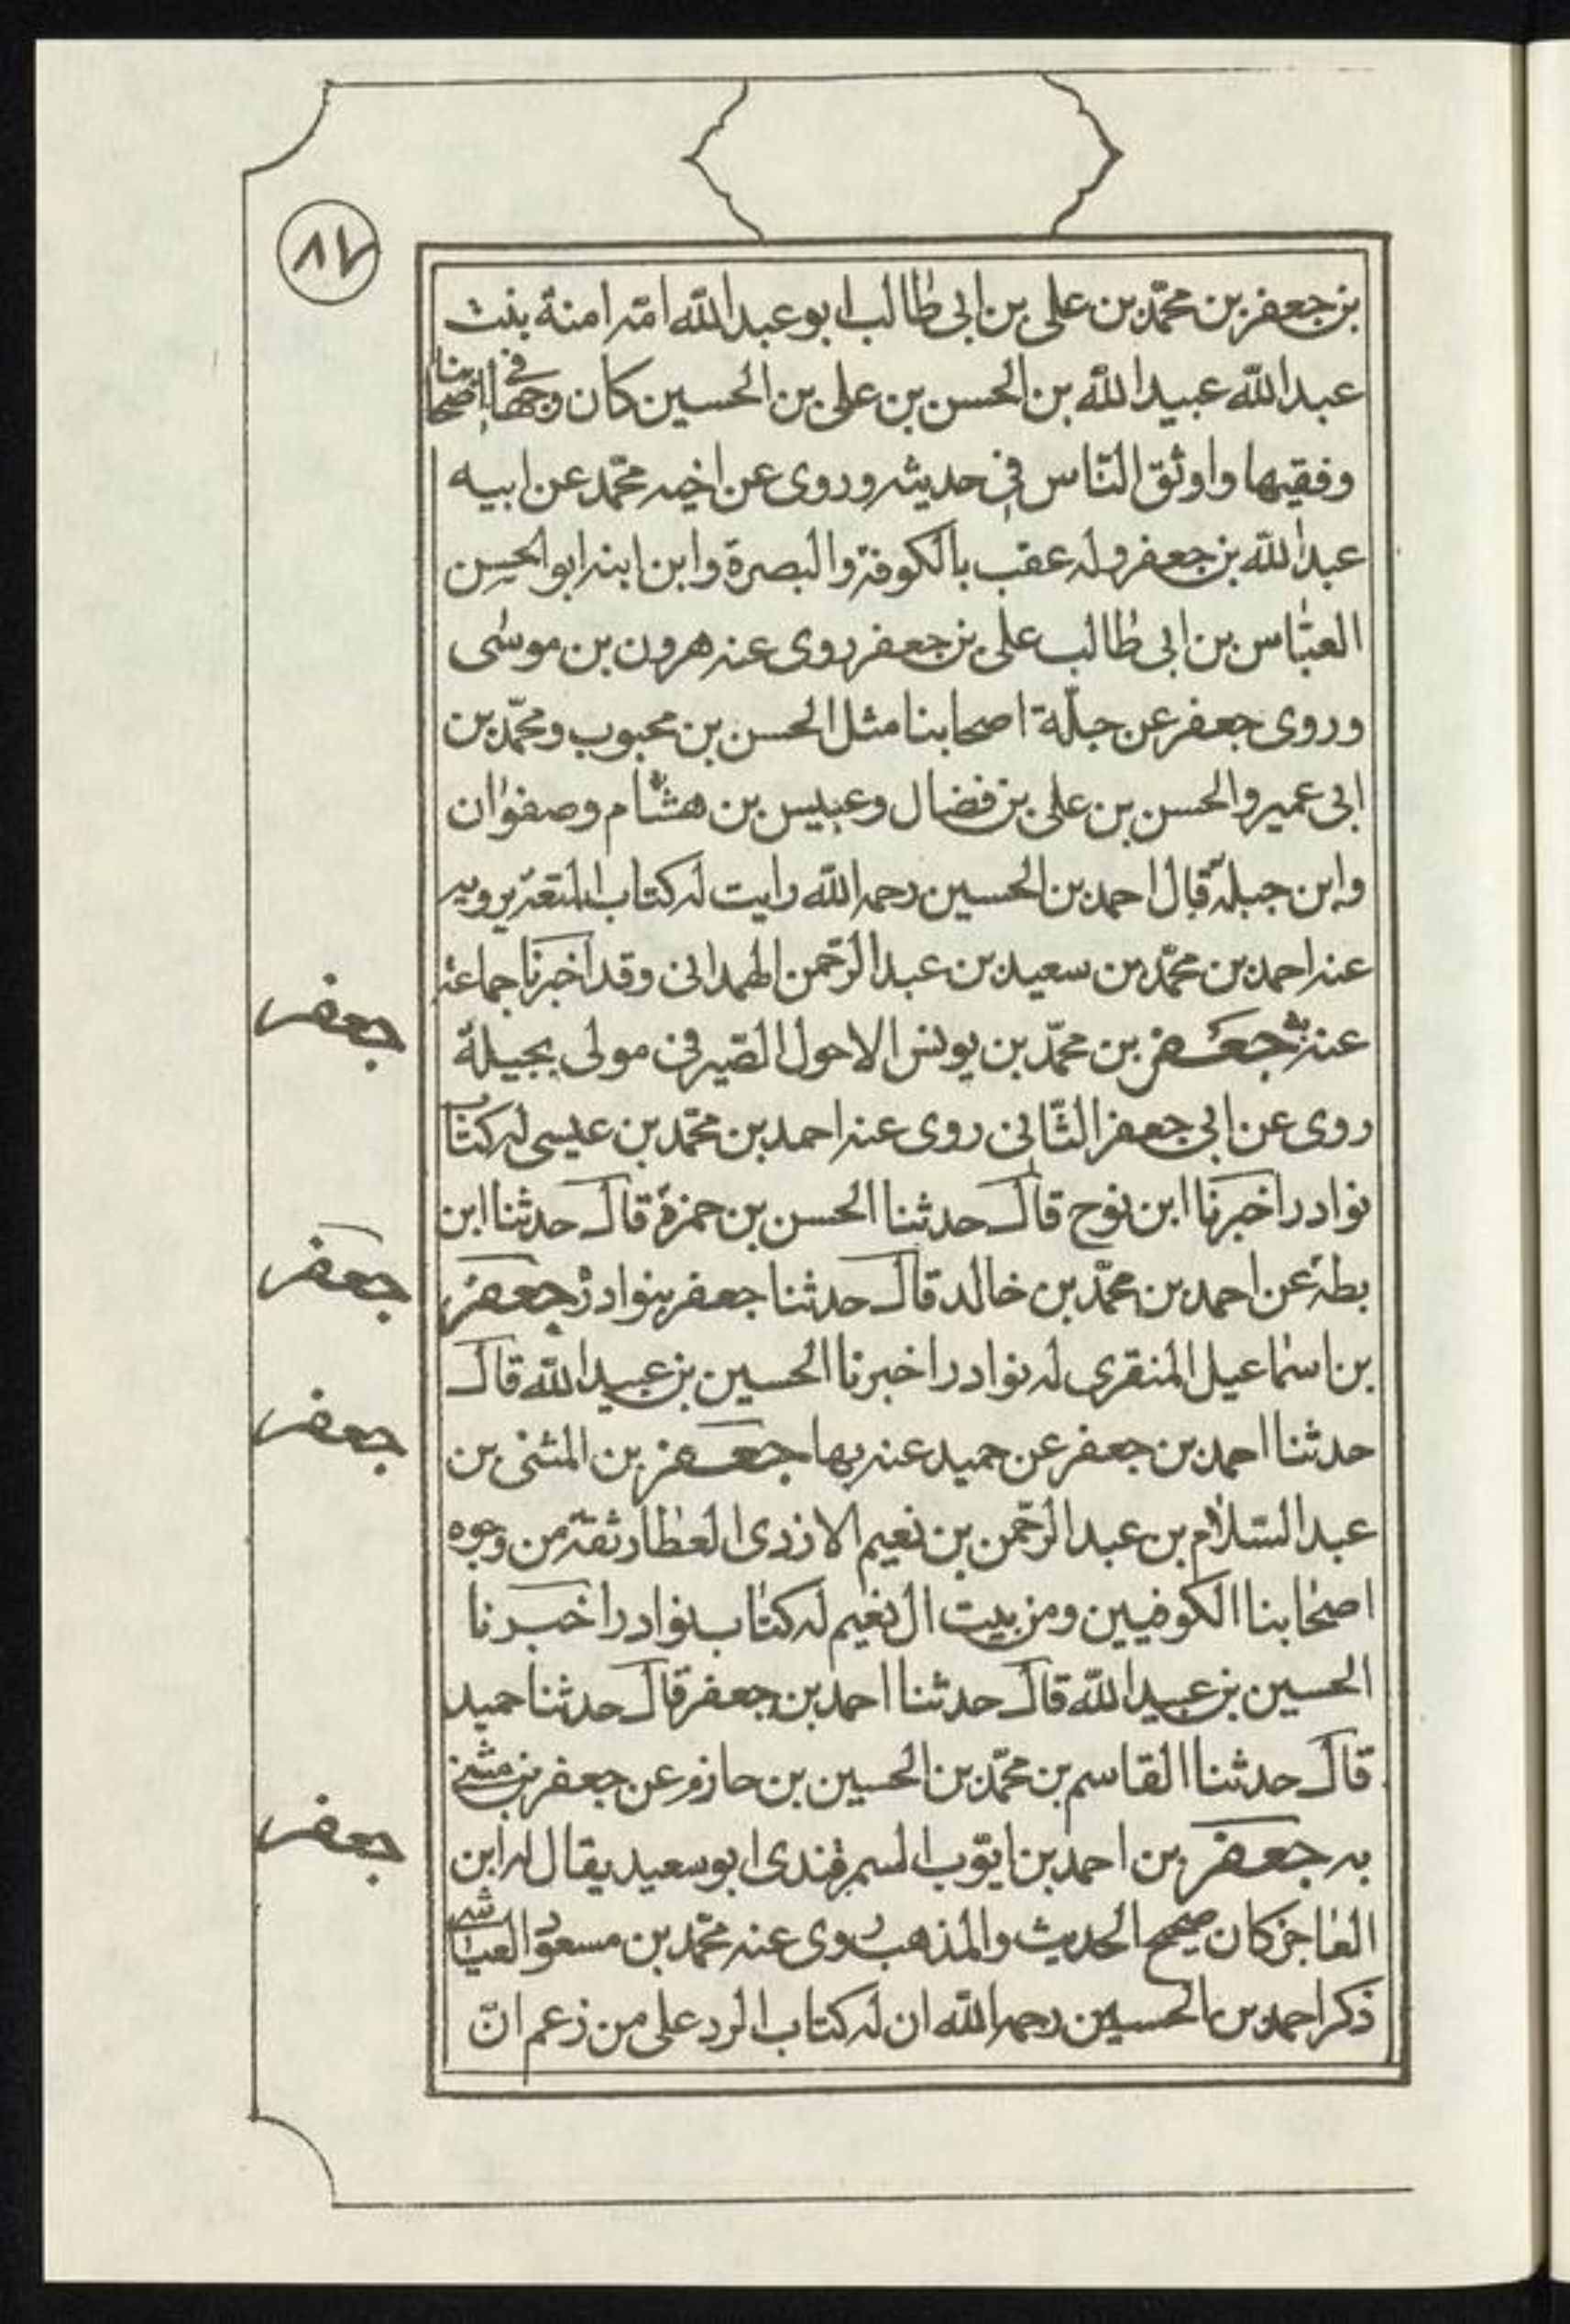 ٨٧
بن جعفر بن محمّد بن على بن ابى طالب ابو عبد اللّه امّه امنة بنت
عبد اللّه عبيد اللّه بن الحسن بن على بن الحسين كان وجها فى اصحابنا
وفقيها واوثق النّاس فى حديثه وروى عن اخيه محمّد عن ابيه
عبد اللّه بن جعفر وله عقب بالكوفة والبصرة وابن ابنه ابو الحسن
العبّاس بن ابى طالب على بن جعفر روى عنه هرون بن موسى
وروى جعفر عن جلّة اصحابنا مثل الحسن بن محبوب ومحمّد بن
ابى عمير والحسن بن على بن فضال وعبيس بن هشام وصفوان
وابن جبلة قال احمد بن الحسين رحمه اللّه رايت له كتاب المتعة يرويه
عنه احمد بن محمّد بن سعيد بن عبد الرّحمن الهمدانى وقد اخبرنا جماعة
عنه جعفر بن محمّد بن يونس الاحول الصّيرفى مولى بجيلة
روى عن ابى جعفر الثّانى روى عنه احمد بن محمّد بن عيسى له كتاب
نوادر اخبرنا ابن نوح قال حدثنا الحسن بن حمزة قال حدثنا ابن
بطة عن احمد بن محمّد بن خالد قال حدثنا جعفر بنوادر جعفر
بن اسماعيل المنقرى له نوادر اخبرنا الحسين بن عبيد اللّه قال
حدثنا احمد بن جعفر عن حميد عنه بها جعفر بن المثنى بن
عبد السّلام بن عبد الرّحمن بن نعيم الازدى العطار ثقة من وجوه
اصحابنا الكوفيين ومن بيت ال نعيم له كتاب نوادر اخبرنا
الحسين بن عبيد اللّه قال حدثنا احمد بن جعفر قال حدثنا حميد
قال حدثنا القاسم بن محمّد بن الحسين بن حازم عن جعفر بن مثنى
به جعفر بن احمد بن ايّوب السمرقندى ابو سعيد يقال له ابن
العاجز كان صحيح الحديث والمذهب روى عنه محمّد بن مسعود العياشى
ذكر احمد بن الحسين رحمه اللّه ان له كتاب الرد على من زعم انّ
جعفر
جعفر
جعفر
جعفر